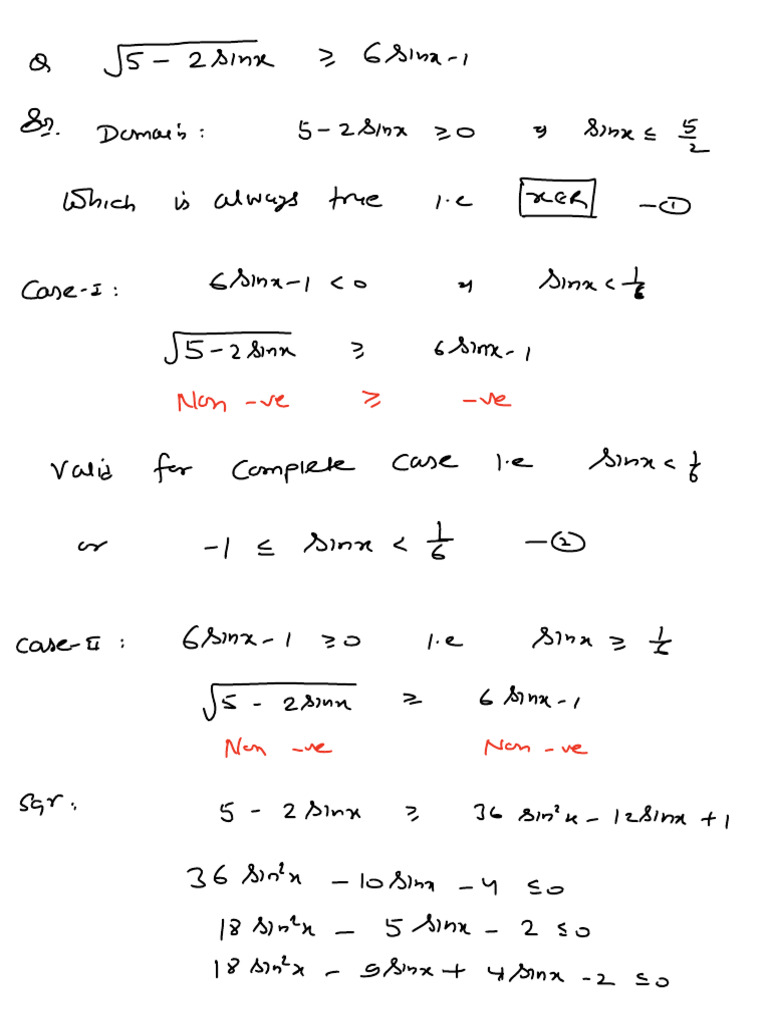 Q √5 - 2 sinx ≥ 6 sinx - 1
Sol. Domain : 5 - 2 sinx ≥ 0 ⇒ sinx ≤ 5/2
Which is always true i.e x∈R - ①
Case-I : 6 sinx - 1 < 0 ⇒ sinx < 1/6
√5 - 2 sinx ≥ 6 sinx - 1
Non -ve ≥ -ve
Valid for complete case i.e sinx < 1/6
or -1 ≤ sinx < 1/6 - ②
Case-II : 6 sinx - 1 ≥ 0 i.e sinx ≥ 1/6
√5 - 2 sinx ≥ 6 sinx - 1
Non -ve Non -ve
Sqr : 5 - 2 sinx ≥ 36 sin²x - 12 sinx + 1
36 sin²x - 10 sinx - 4 ≤ 0
18 sin²x - 5 sinx - 2 ≤ 0
18 sin²x - 9 sinx + 4 sinx - 2 ≤ 0